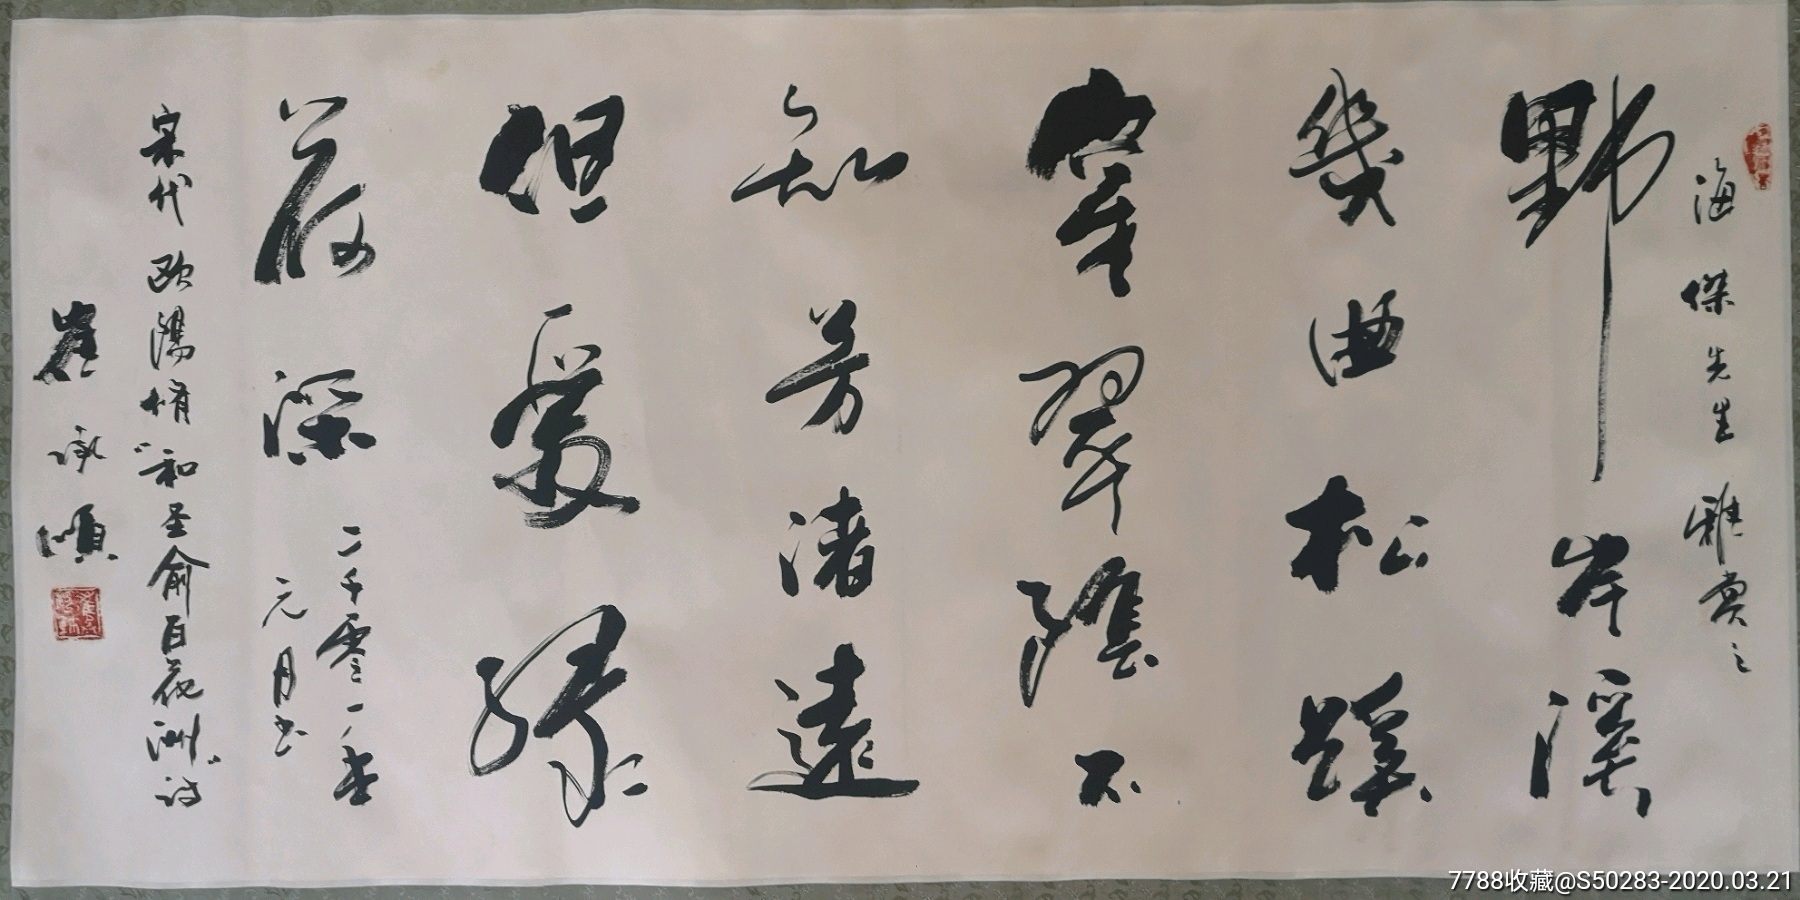 海傑先生雅賞之
野岸溪
幾曲松蹊
穿翠隂不
知芳渚遠
但愛緑
荷深
二千零一年
元月书
宋代欧陽脩“和圣俞百花洲”诗
崔承順
7788收藏@S50283-2020.03.21